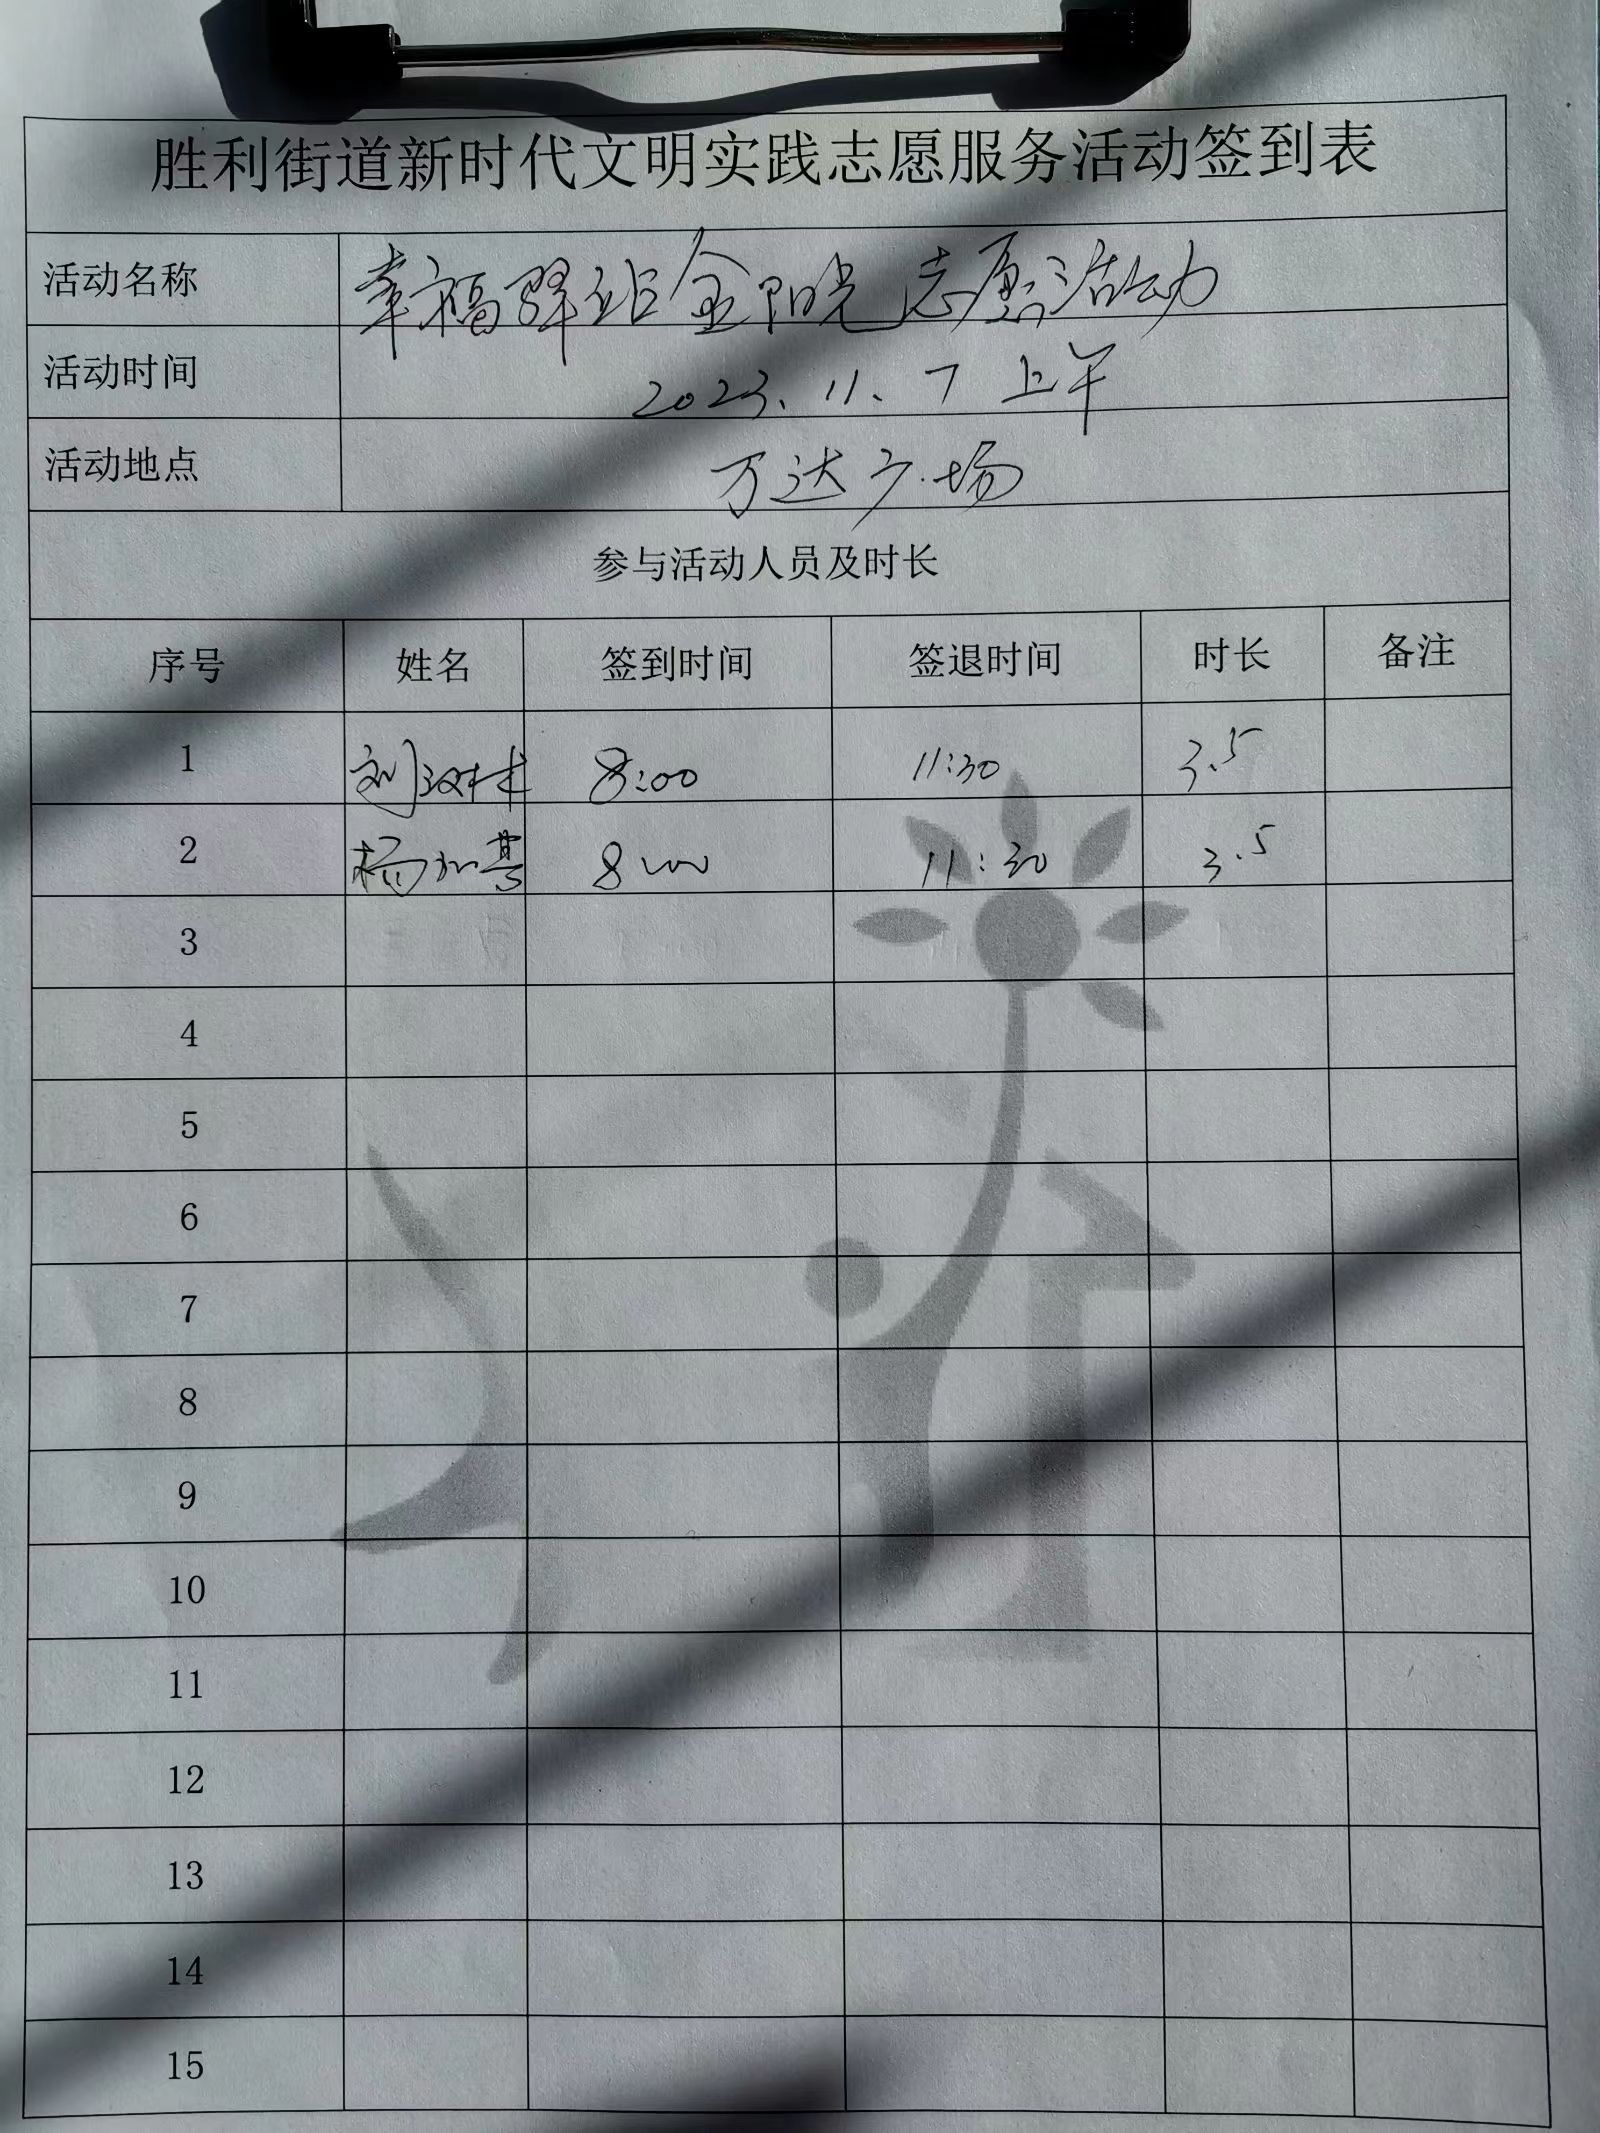 胜利街道新时代文明实践志愿服务活动签到表
活动名称 幸福驿站金阳光志愿活动
活动时间 2023.11.7 上午
活动地点 万达广场
参与活动人员及时长
序号 姓名 签到时间 签退时间 时长 备注
1 刘汉林 8:00 11:30 3.5
2 杨 8:00 11:30 3.5
3
4
5
6
7
8
9
10
11
12
13
14
15